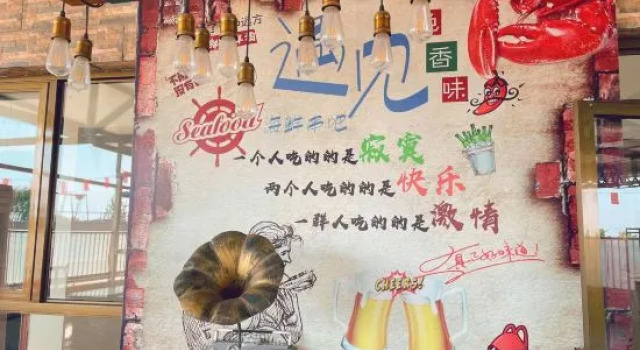 远方
遇见
色香味
Seafood
一个人吃的的是寂寞
两个人吃的的是快乐
一群人吃的的是激情
CHEERS!